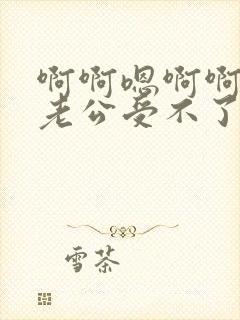 啊啊嗯啊啊
老公受不了
雪茶